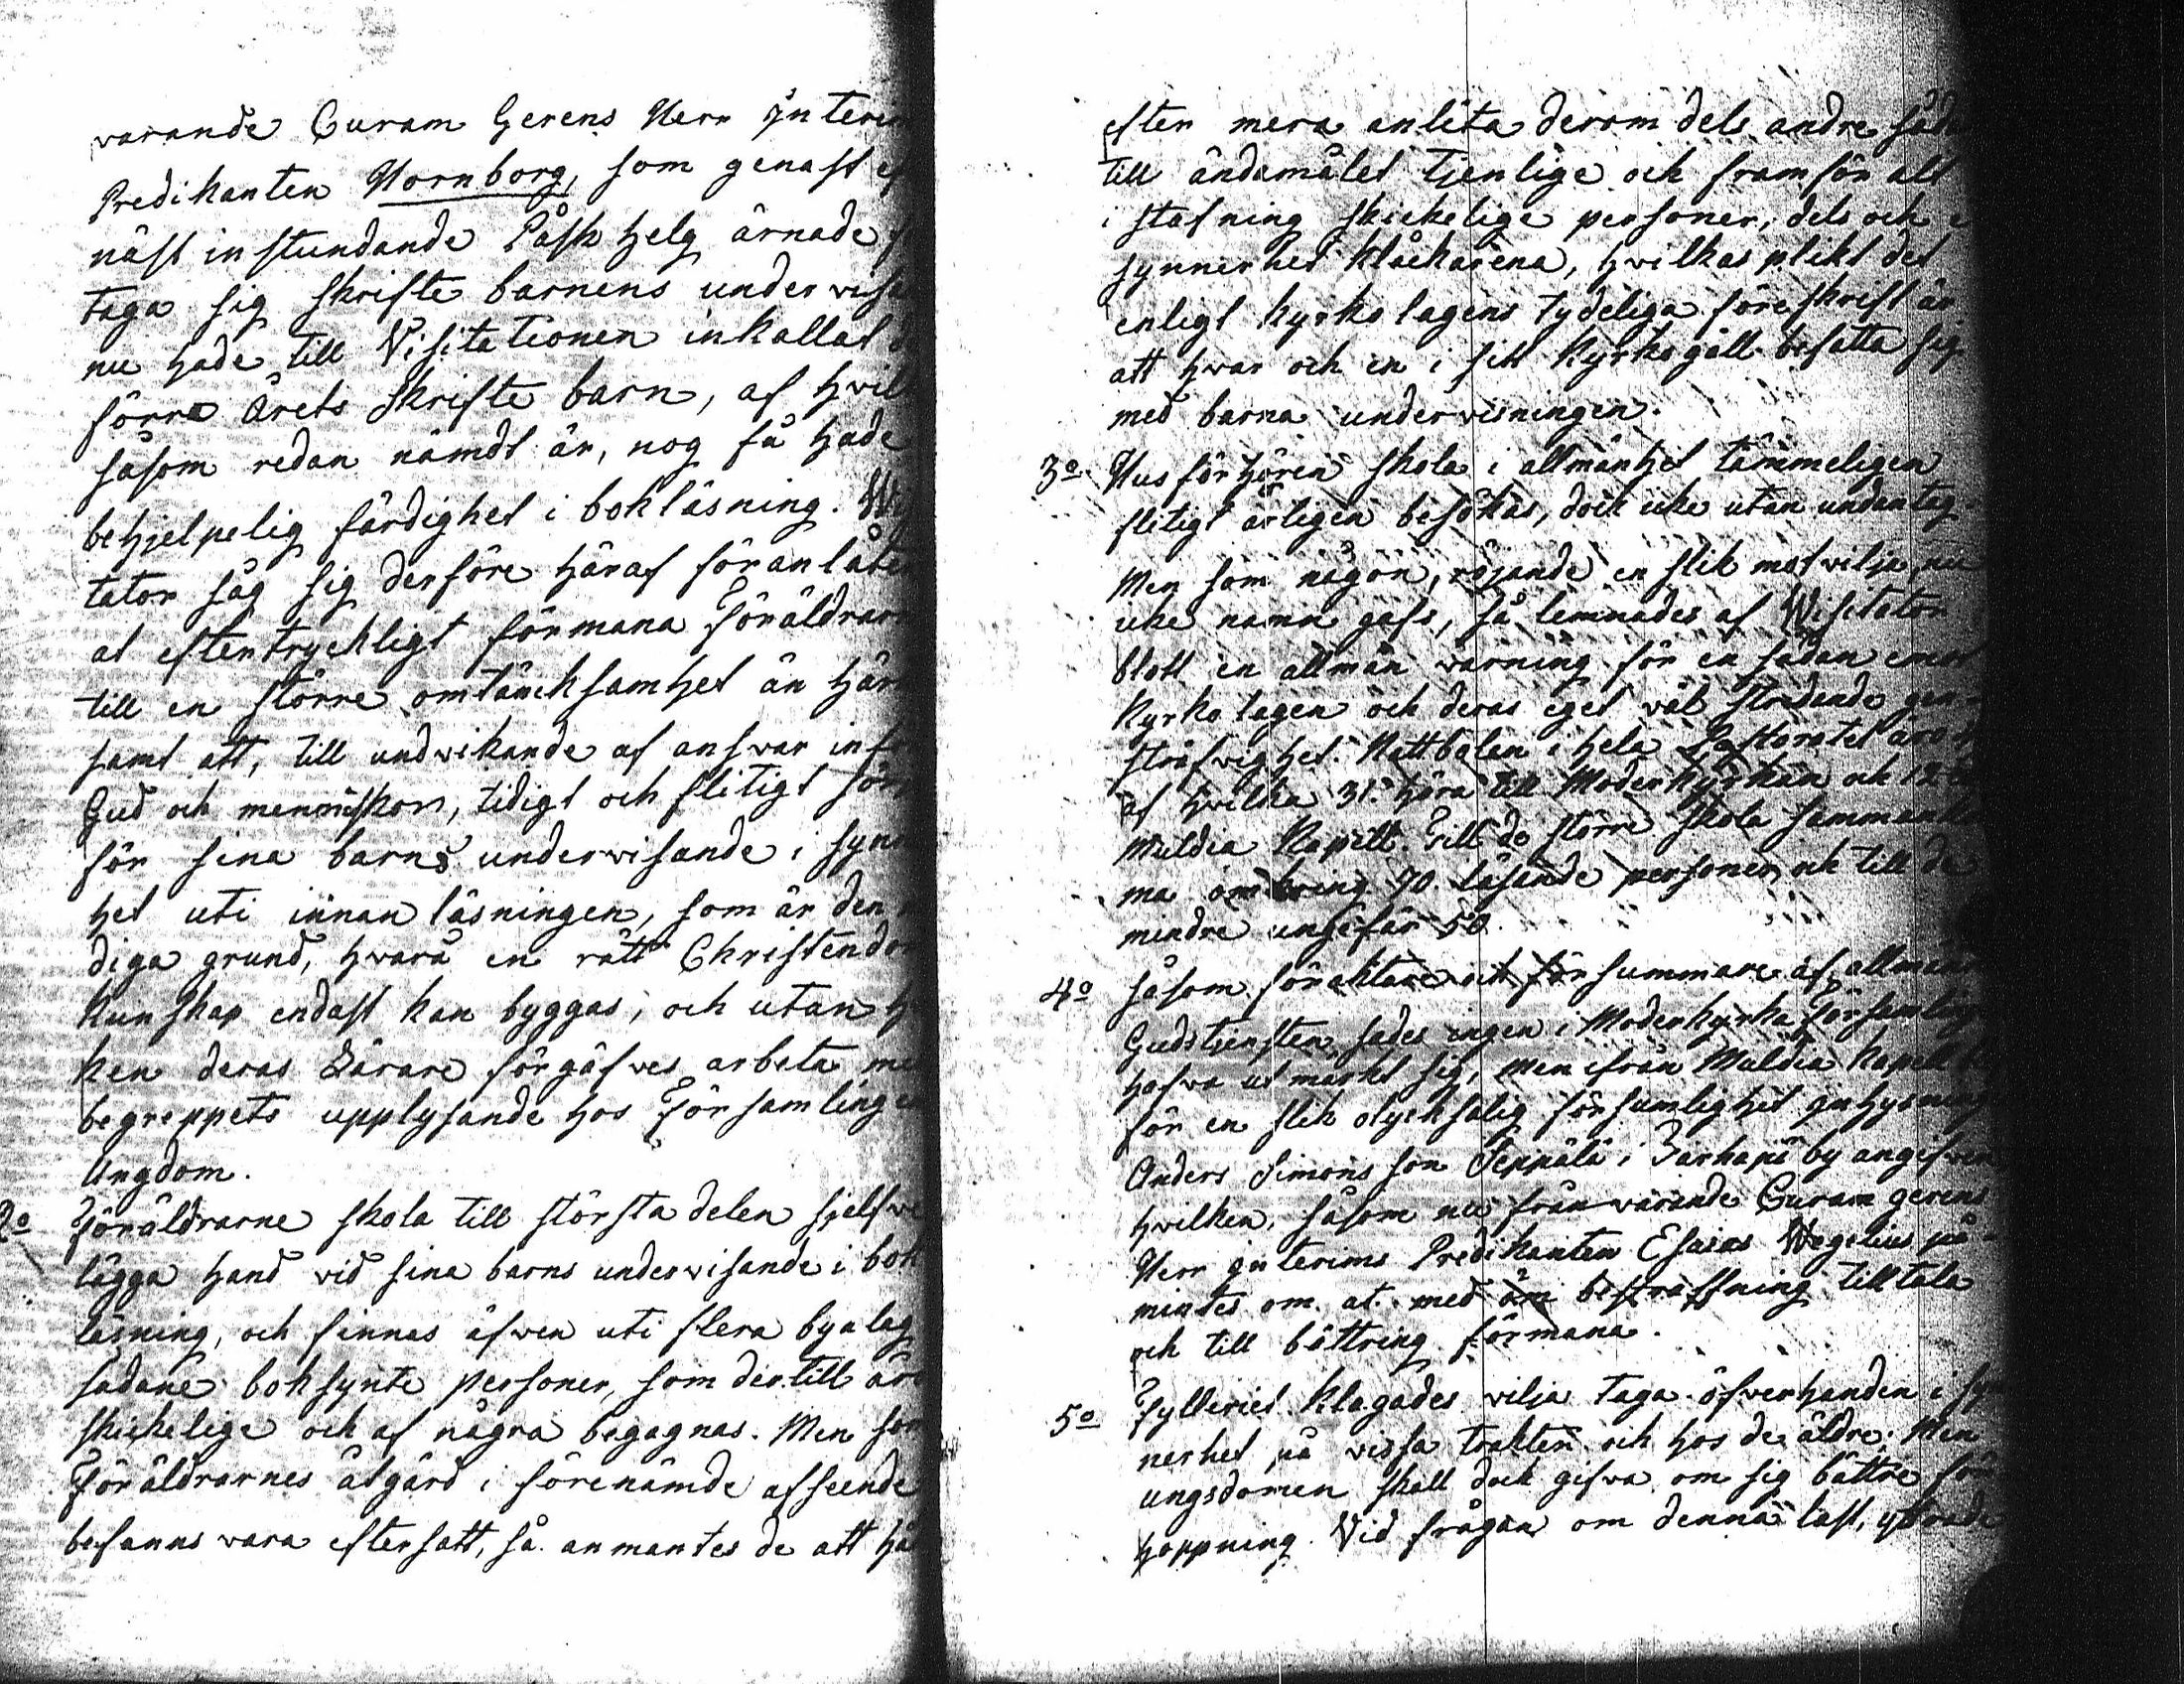 varande Curam Gerens Herr Interi
Predikanten Hornborg, som genast ef
näst instundande Påsk helg ärnade
taga sig skrifte barnens underwisa
nu hade till Visitationen inkallat
förra Årets skrifte barn, af hwil
såsom redan nämdt är, nog få hade
behjelpelig färdighet i bokläsning. Wi
tator såg sig derföre häraf föranlåte
at eftertryckligt förmana Föräldrar
till en större omtäncksamhet än här
samt att, till undwikande af answar inf
Gud och menniskor, tidigt och flitigt sör
för sina barns underwisande i syn
het uti innan läsningen, som är den
diga grund, hwarå en rätt Christendo
kunskap endast kan byggas, och utan h
ken deras Lärare förgäfwes arbeta me
begreppets upplysande hos Församlingen
Ungdom.
2o Föräldrarne skola till största delen sjelfwe
lägga hand vid sina barns underwisande i bok
läsning, och finnas äfwen uti flera byalag
sådane boksynte personer, som dertill äro
skickelige och af några begagnas. Men som
Föräldrarnes åtgärd i förenämde afseende
befanns vara eftersatt, så anmantes de att hä
efter mera anlita derom dels andre såda
till ändamålet tjenlige och framför alt
i stafning skickelige personer, dels och
synnerhet klåckarena, hwilkas plikt det
enligt kyrko lagens tydeliga föreskrift är
att hwar och en i sitt kyrkogäll befatta sig
med barna underwisningen.
3o Husförhören skola i allmänhet tämmeligen
flitigt årligen besökas, dock icke utan undantag.
Men som någon, röjande en slik motvilja, nu
icke namn gafs, så lemnades af Wisitator
blott en allmän varning för en sådan emot
Kyrko lagen och deras eget väl stridande gen-
sträfwighet. Nattbolen i hela Pastoratet äro
af hwilka 31 höra till Moderkyrkan och 12
Muldia Kapell. Till de större skola samman
ma omkring 70 läsande personer, och till de
mindre ungefär 50.
4o Såsom föraktare och försummare af allmän
Gudstjensten, sades ingen i Moderkyrko Församling
hafwa utmärkt sig, men ifrån Muldia Kapell
för en slik olycksalig försumlighet Inhysning
Anders Simons son Seppälä i by angifwen
hwilken, såsom nu från warande Curam gerens
Herr Interims Predikanten Esaias Wegelius på-
mintes om at med öm bestraffning tilltala
och till bättring förmana.
5o Fylleriet klagades wilja taga öfwerhanden i syn
nerhet på wissa trakter och hos de äldre. Men
ungdomen skall dock gifwa om sig bättre för
hoppning. Vid frågan om denna last, yttrade